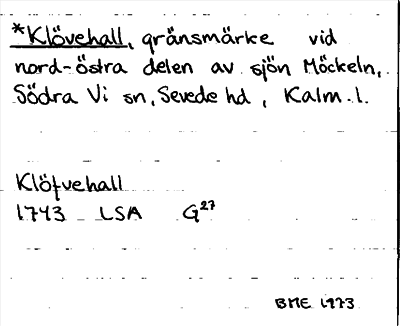 *Klövehall, gränsmärke vid
nord-östra delen av sjön Möckeln,
Södra Vi sn, Sevede hd, Kalm. l.
Klöfvehall
1743 LSA G27
BME 1973